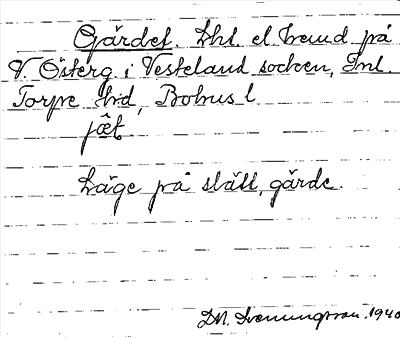 Gärdet. Lht el. hemd. på
V. Österg. i Vesteland socken, Inl.
Torpe hd, Bohus l.
jæt.
Läge på slätt, gärde.
D.N. Svenungsson. 1940